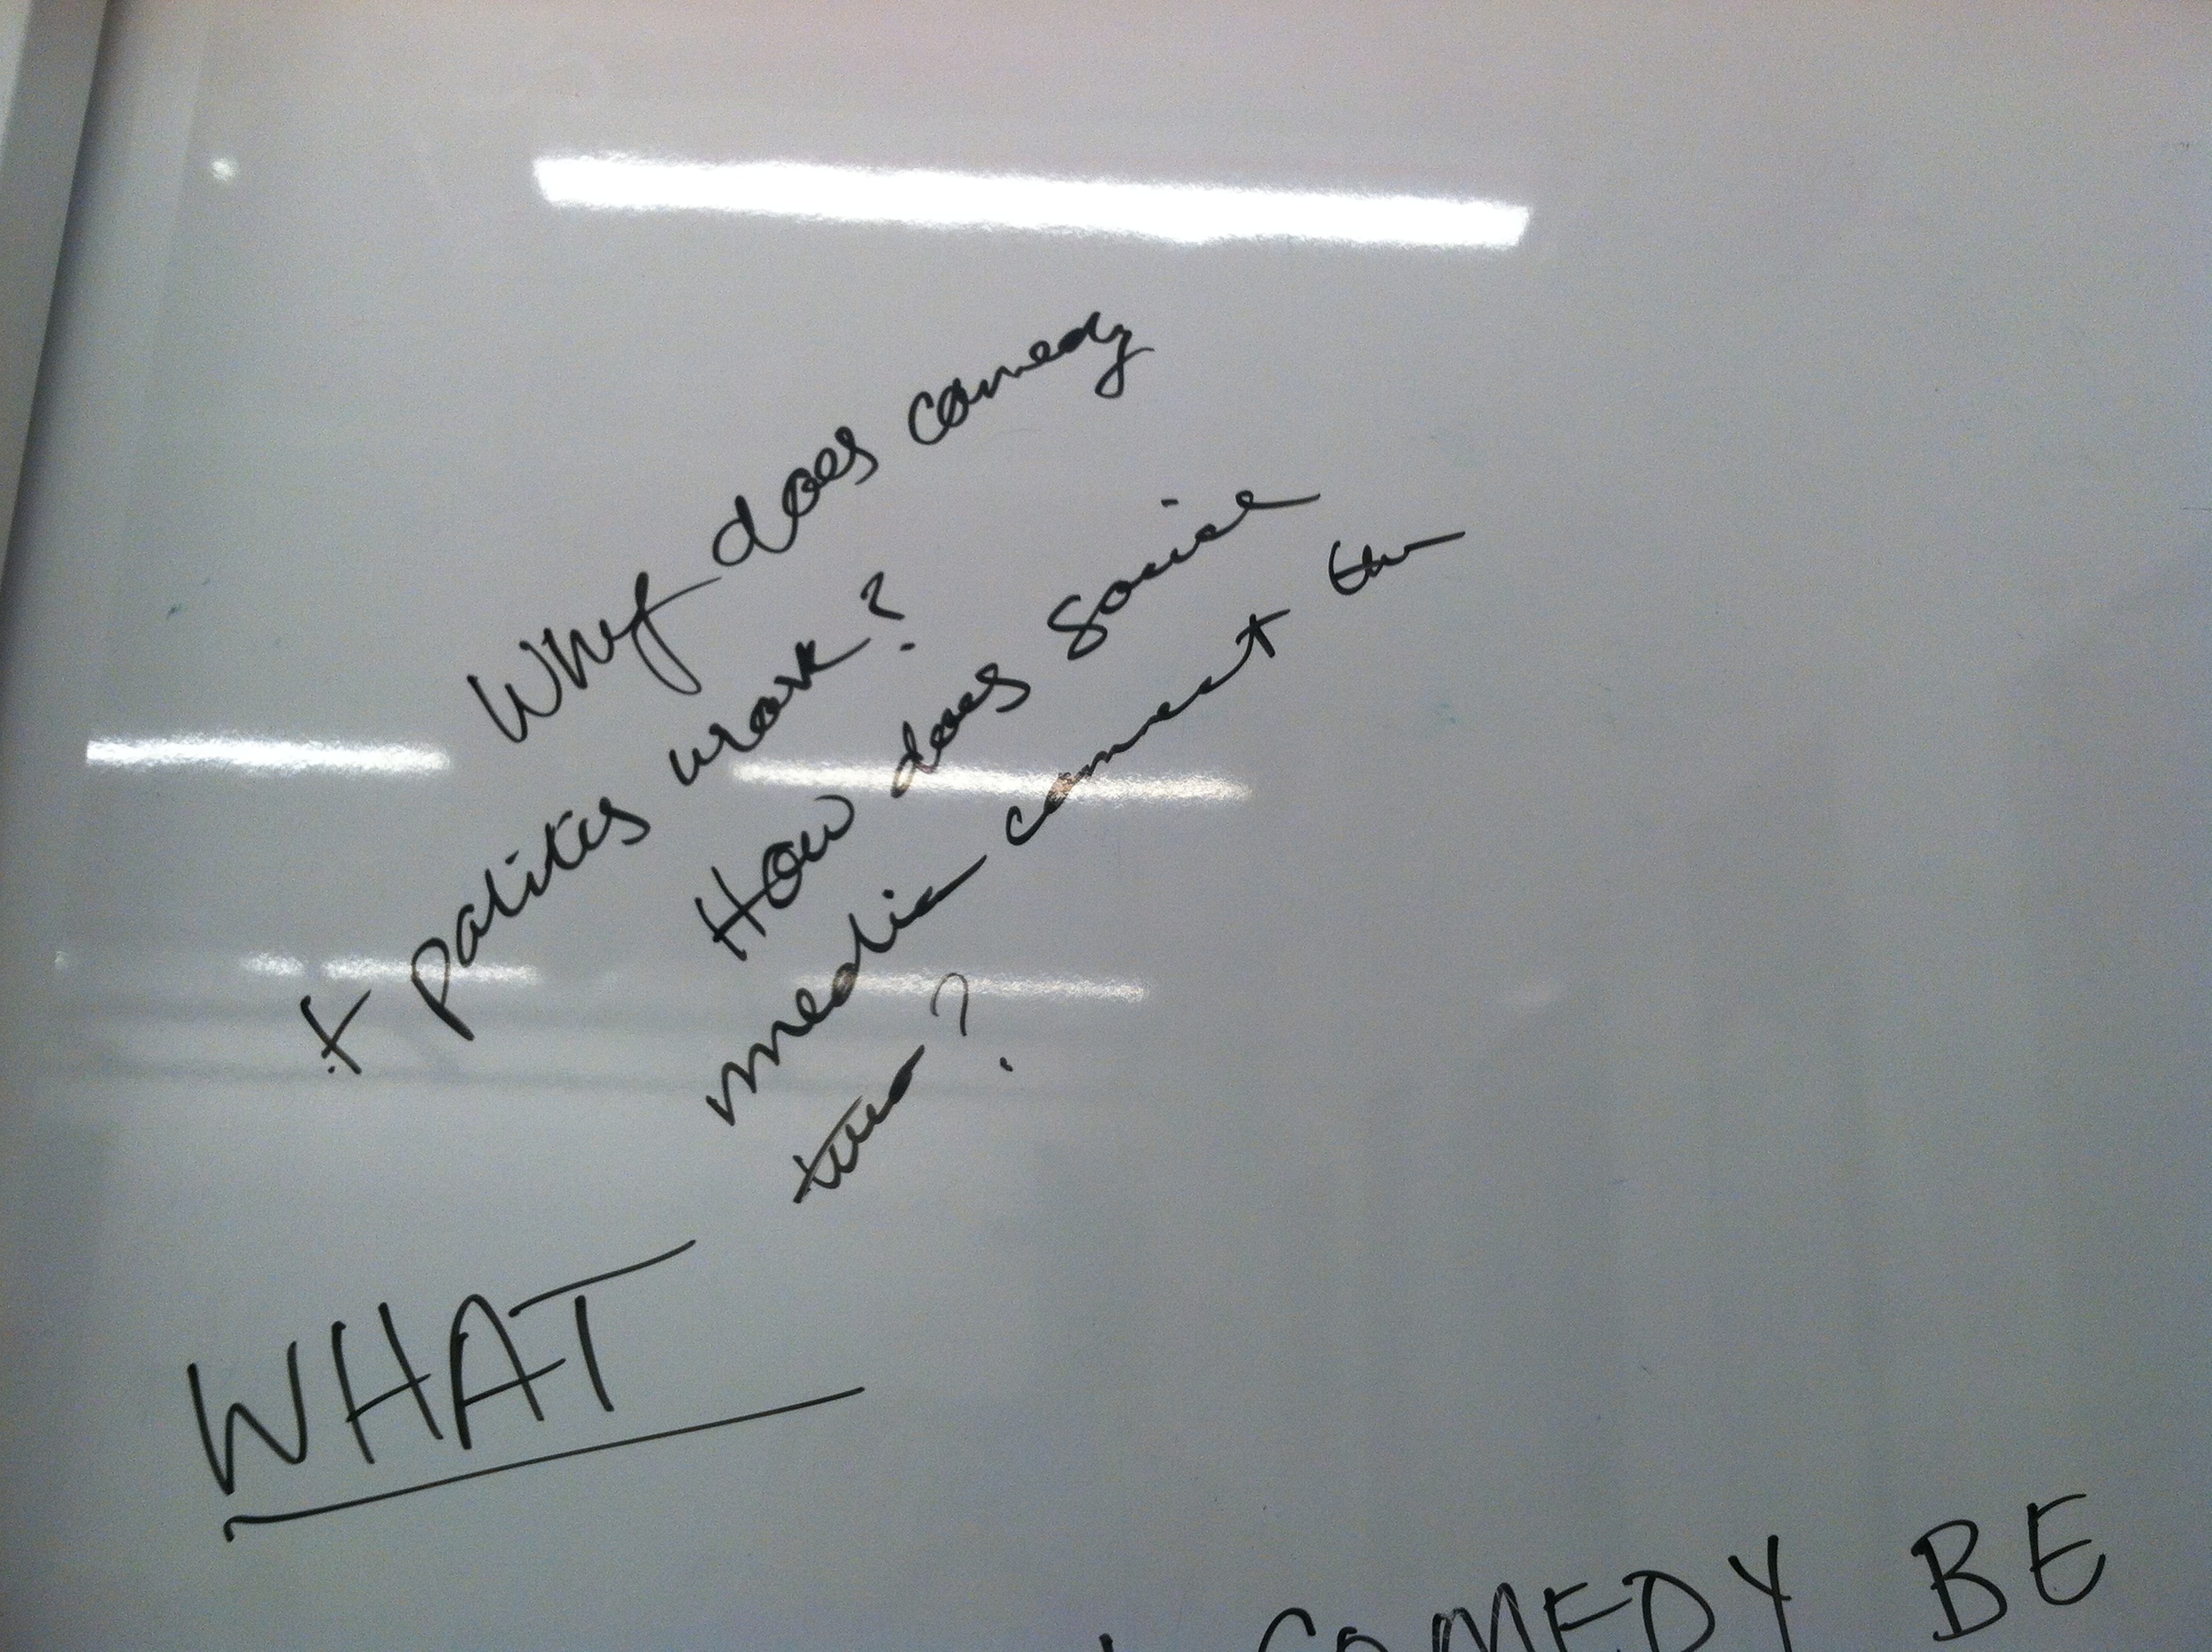 Why does comedy
+ politics work?
How does social
media connect the
two?
WHAT
COMEDY BE